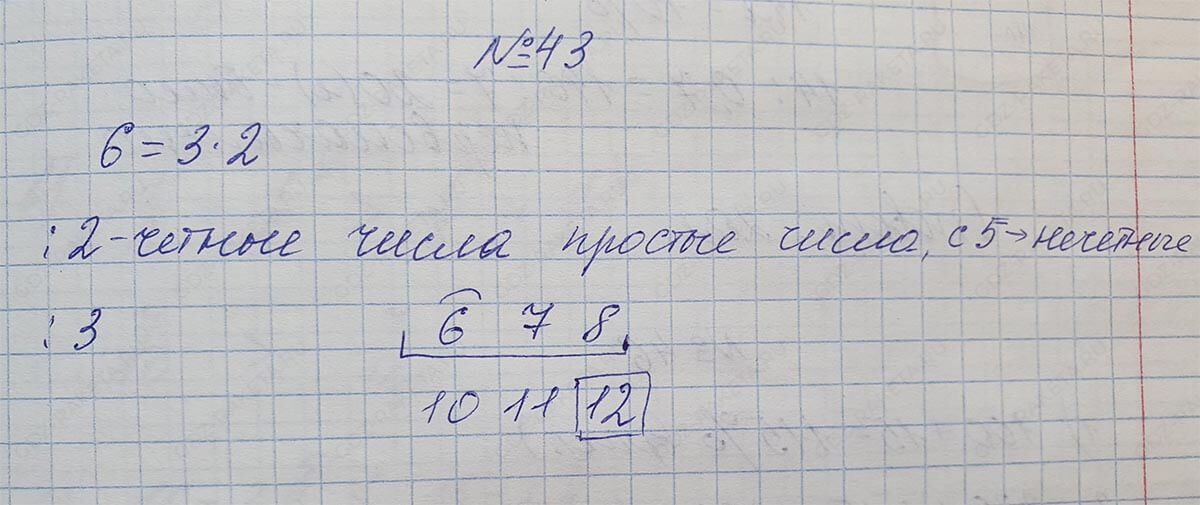 №43
6 = 3 · 2
: 2 - четные числа простые числа, с 5 → нечетные
: 3 6 7 8
10 11 12